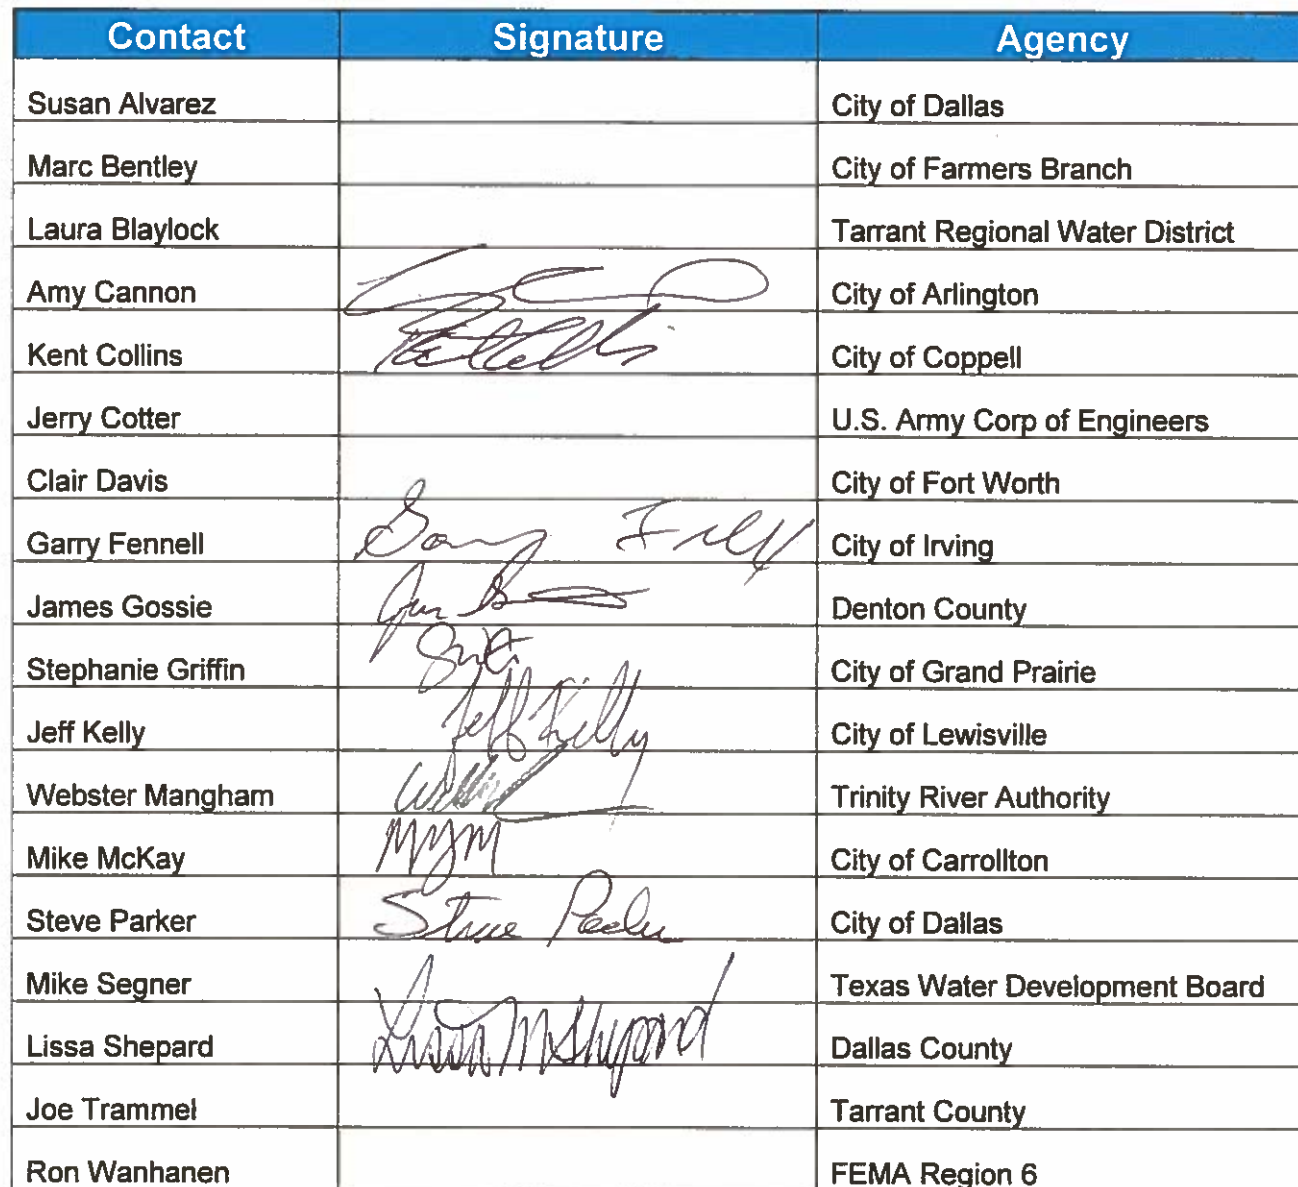 Contact Signature Agency
Susan Alvarez City of Dallas
Marc Bentley City of Farmers Branch
Laura Blaylock Tarrant Regional Water District
Amy Cannon City of Arlington
Kent Collins City of Coppell
Jerry Cotter U.S. Army Corp of Engineers
Clair Davis City of Fort Worth
Garry Fennell City of Irving
James Gossie Denton County
Stephanie Griffin City of Grand Prairie
Jeff Kelly Jeff Kelly City of Lewisville
Webster Mangham Trinity River Authority
Mike McKay City of Carrollton
Steve Parker Steve Parker City of Dallas
Mike Segner Texas Water Development Board
Lissa Shepard Lissa M Shepard Dallas County
Joe Trammel Tarrant County
Ron Wanhanen FEMA Region 6